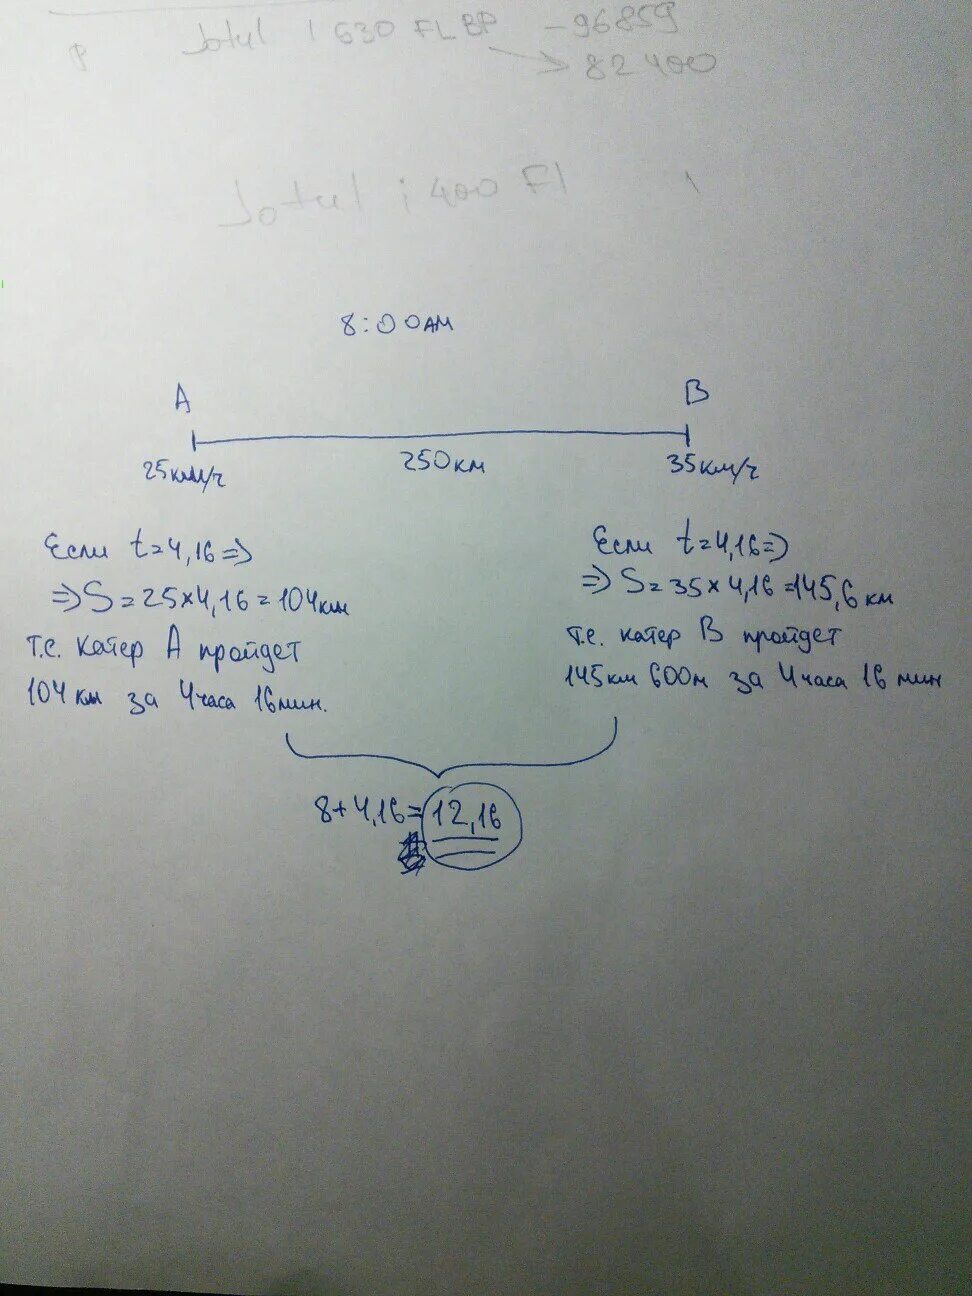 Jotul i 630 FL BP - 96859
→ 82400
Jotul i 400 Fl
8:00AM
A B
25км/ч 250км 35км/ч
Если t=4,16 =>
=> S = 25×4,16 = 104км
т.е. катер A пройдет
104 км за 4часа 16мин.
Если t=4,16 =>
=> S = 35×4,16 = 145,6 км
т.е. катер B пройдет
145км 600м за 4часа 16 мин
8+4,16= 12,16